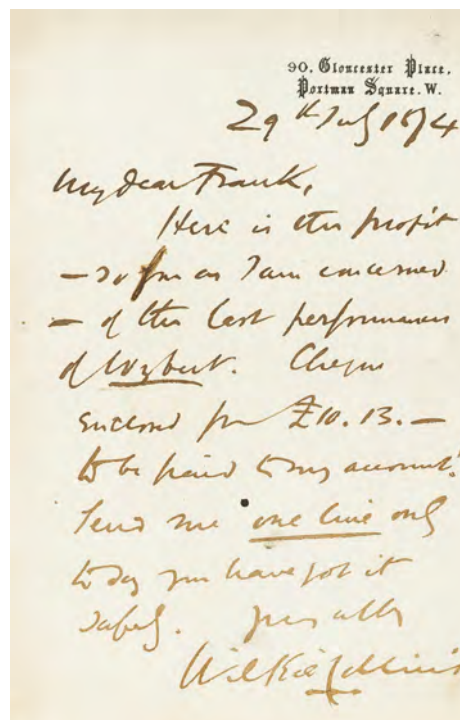 90, Gloucester Place,
Portman Square. W.
29th July 1874
My dear Frank,
Here is the profit
— so far as I am concerned
— of the last performances
of Wybert. Cheque
enclosed for £10. 13. —
to be paid to my account.
Send me one line only
to say you have got it
safely. yours
Wilkie Collins